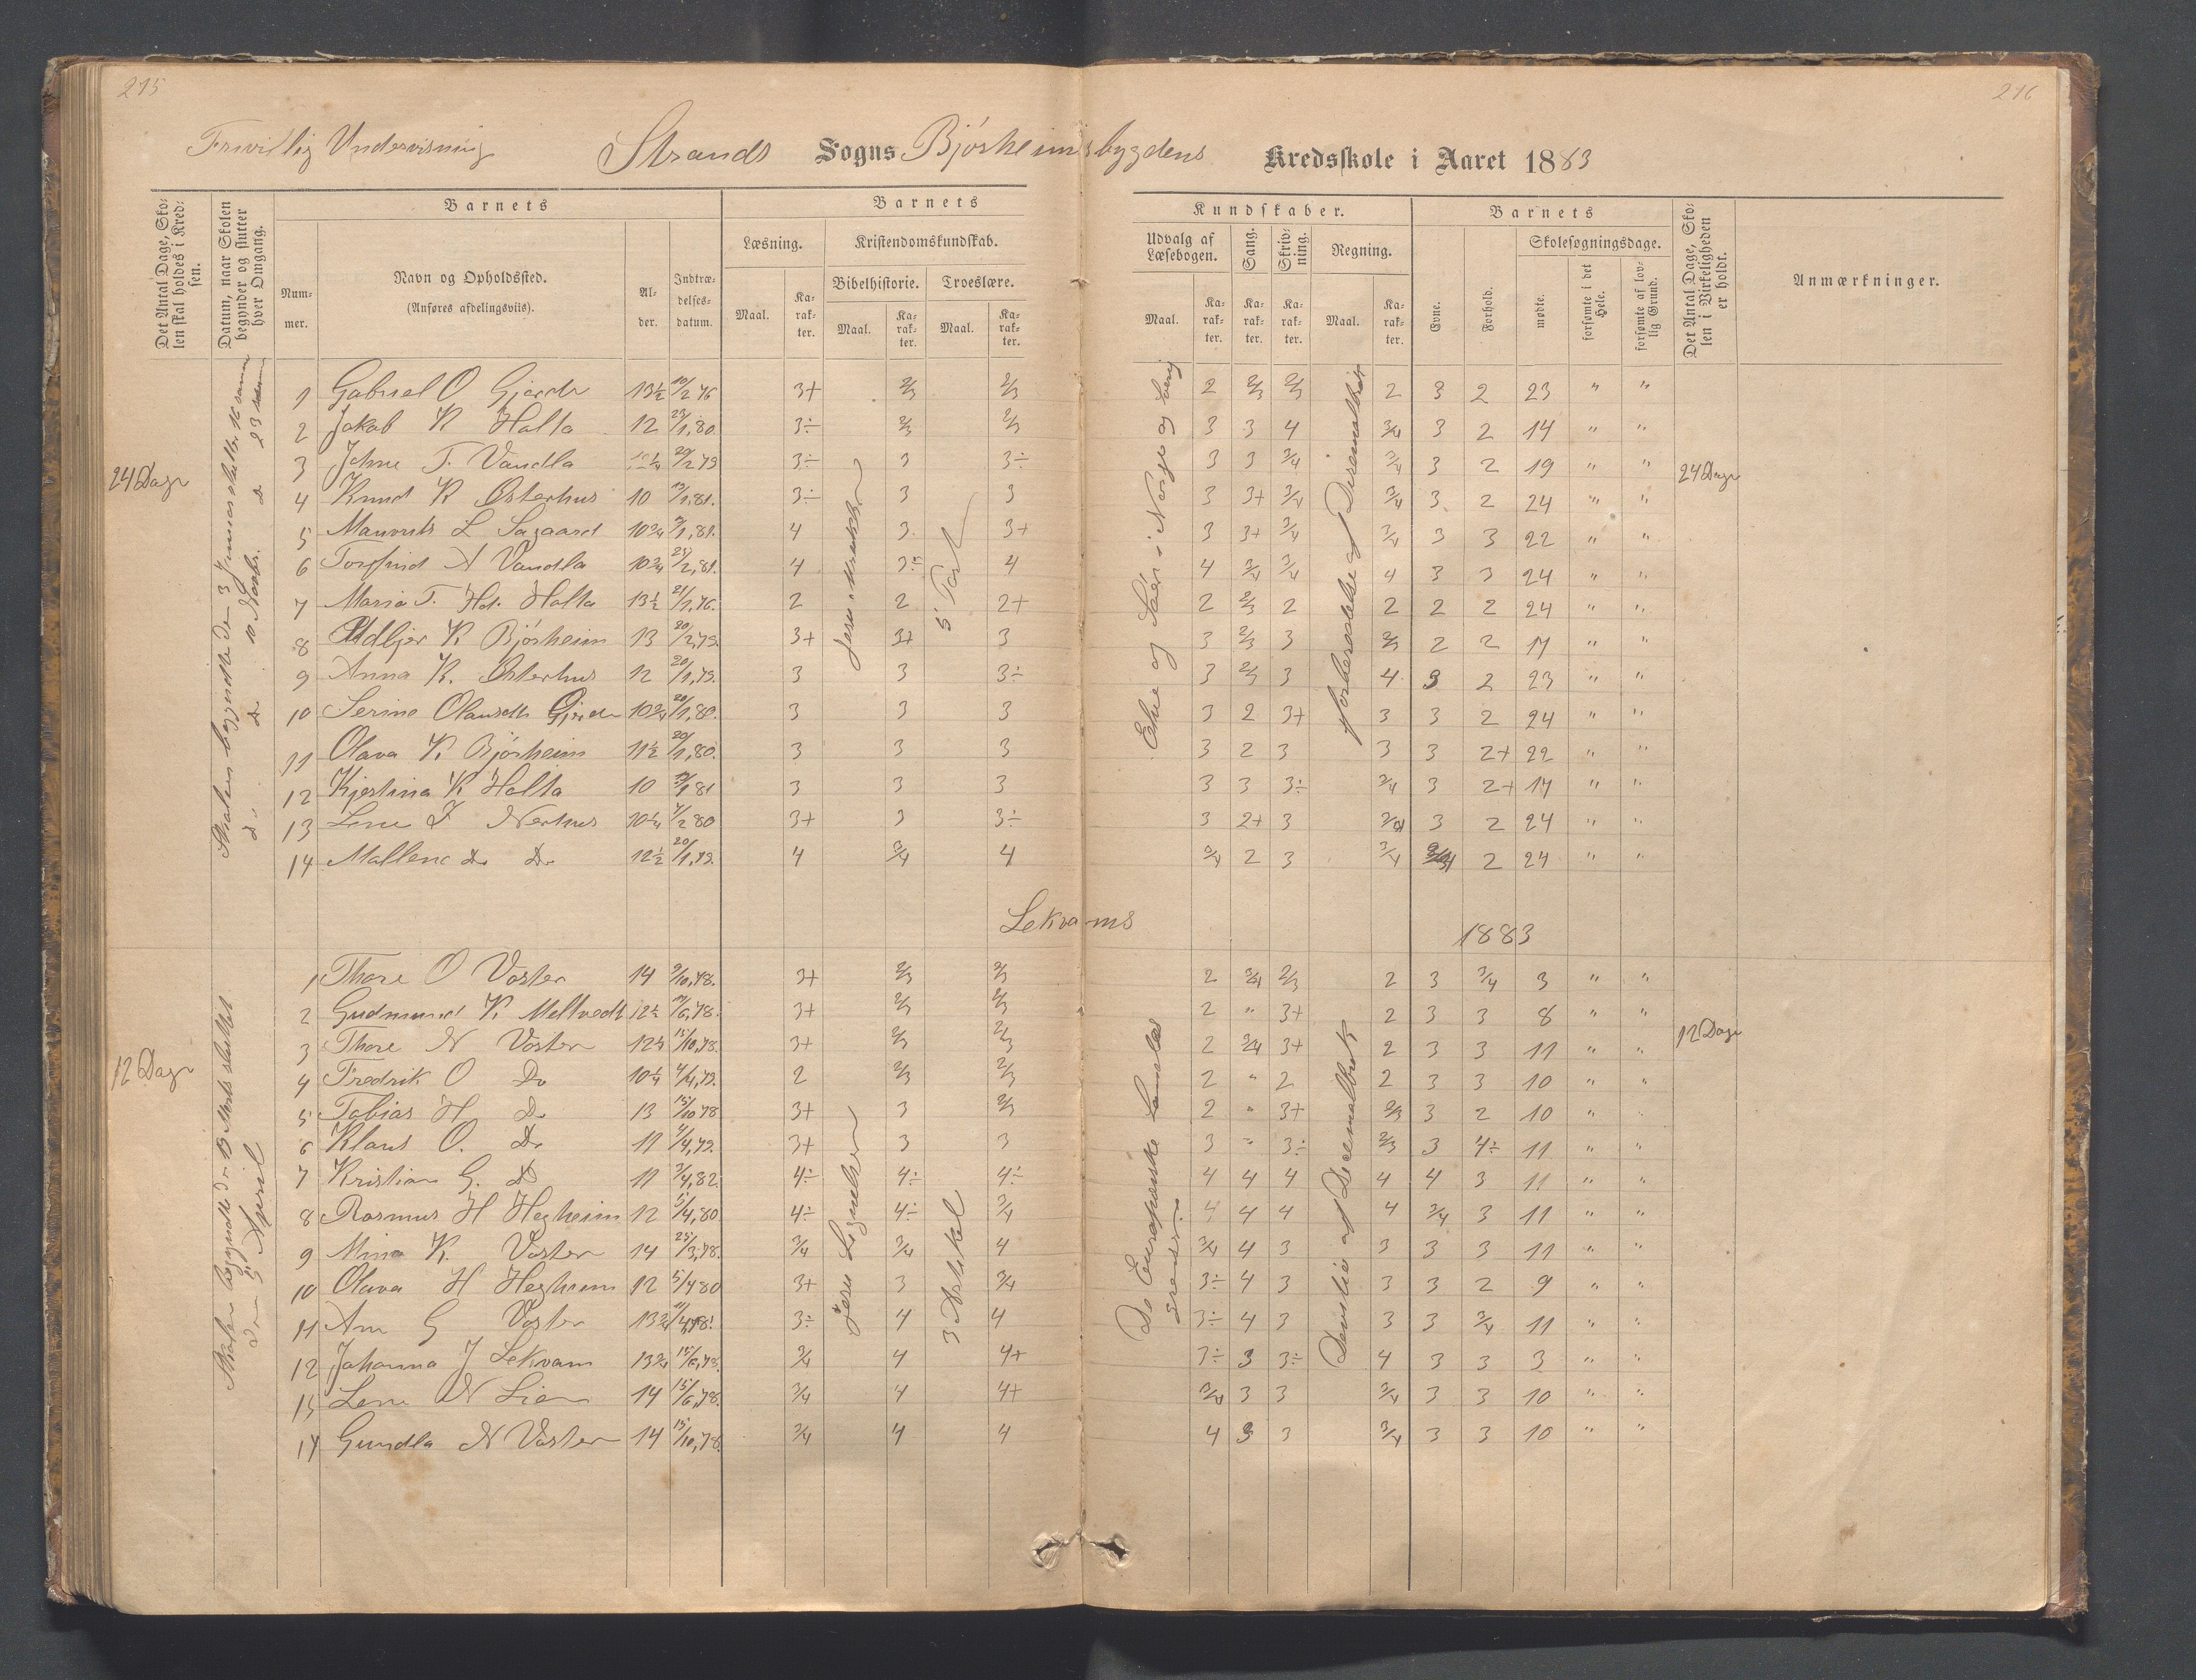 215
216
Frivillig Undervisning Strands Sogns Bjørheimsbygdens Kredsskole i Aaret 1883
Det Antal Dage, Skolen skal holdes i Kredsen.
Datum, naar Skolen begynder og slutter hver Omgang.
Barnets
Nummer.
Navn og Opholdssted.
(Anføres afdelingsviis).
Alder.
Indtrædelsesdatum.
Barnets
Læsning.
Maal.
Karakter.
Kristendomskundskab.
Bibelhistorie.
Maal.
Karakter.
Troeslære.
Maal.
Karakter.
Kundskaber.
Udvalg af Læsebogen.
Maal.
Karakter.
Sang.
Karakter.
Skrivning.
Karakter.
Regning.
Maal.
Karakter.
Barnets
Evne.
Forhold.
Skolesøgningsdage.
mødte.
forsømte i det Hele.
forsømte af lovlig Grund.
Det Antal Dage, Skolen i Virkeligheden er holdt.
Anmærkninger.
24 Dage
1 Gabriel O Gjerde 13½ 10/2 76 3+ 2/3 2/3 2 2/3 2/3 2 3 2 23 " "
2 Jakob K Holta 12 23/1,80. 3÷ 2/3 2/3 3 3 4 3/4 3 2 14 " "
3 Johne T. Vandla 20/2 79 3÷ 3 3÷ 3 3 3/4 3/4 3 2 19 " " 24 Dage
4 Knud K Østerhus 10 13/1,81. 3÷ 3 3 3 3+ 3/4 3/4 3 2 24 " "
5 Mauvrits L Sagaard 10¾ 9/1,81. 4 3 3+ 3 3+ 3/4 3/4 3 3 22 " "
6 Torfind A Vandla 10¾ 21/2,81. 4 3÷ 4 4 3/4 3/4 4 3 3 24 " "
7 Maria T. Hol. Holta 13½ 21/1,76. 2 2 2+ 2 2/3 2 2 2 2 24 " "
8 Udbjør K Bjørheim 13 20/2,79. 3+ 3+ 3 3 2/3 3 2/3 2 2 17 " "
9 Anna K. Østerhus 12 20/1,79. 3 3 3÷ 3 2/3 3 4 3 2 23 " "
10 Serine Olausdtr Gjerde 10¾ 20/1,80. 3 3 3 3 2 3+ 3 3 2 24 " "
11 Olava K. Bjørheim 11½ 20/1,80. 3 3 3 3 2 3 3 3 2+ 22 " "
12 Kjerstina K Holta 10 81 3 3 3 3 3 3÷ 3/4 3 2+ 17 " "
13 Lene I Nerhus 10¼ 7/2 80 3+ 3 3÷ 3 2+ 3 3/4 3 2 24 " "
14 Mallene Do Do 12½ 20/1,79. 4 3/4 4 3/4 2 3 3/4 2 24 " "
5 Part
Lekvams 1883
12 Dage
1 Thore O Voster 14 9/10,78. 3+ 2/3 2/3 2 3/4 2/3 2 3 3/4 3 " "
2 Gudmund K Meltvedt 12½ 6,78. 3+ 2/3 2/3 2 " 3+ 2 3 3 8 " "
3 Thore N Voster 12¾ 15/10,78. 3+ 2/3 2/3 2 3/4 3+ 2 3 3 11 " " 12 Dage
4 Fredrik O Do 10¼ 4/4,79. 2 2/3 2/3 2 " 2 2 3 3 10 " "
5 Tobias H Do 13 15/10 78 3+ 3 2/3 2 " 3+ 2/3 3 2 10 "
6 Klaus O. Do 11 4/4,79. 3+ 3 3 3 " 3÷ 2/3 3 4÷ 11 " "
7 Kristian G. Do 11 3/4,82. 4÷ 4÷ 4÷ 4 4 4 4 4 3 11 " "
8 Rasmus H Hegheim 12 5/4,80 4÷ 4÷ 3/4 4 4 4 4 3/4 3 11 " "
9 Mina K. Voster 14 25/3,78. 3/4 3/4 4 3/4 4 3 3 3 3 11 " "
10 Olava H Hegheim 12 5/4 80 3+ 3 3/4 3÷ 4 3 3 3 2 9 " "
11 Ane G Voster 13¾ 3÷ 4 4 3÷ 4 3 3 3 3/4 11 " "
12 Johanna J Lekvam 13¾ 15/6,78. 3/4 4 4+ 3÷ 3 3÷ 4 3 3 3 " "
13 Lene N Lien 14 15/6,78. 3/4 4 4+ 3/4 3 3 3/4 3 3 10 " "
14 Gundla N Voster 14 15/10,78. 3/4 4 4 4 3 3 3/4 3 3 10 " "
Jesu Lignelser
3 Artikel
De Europæiske Landes